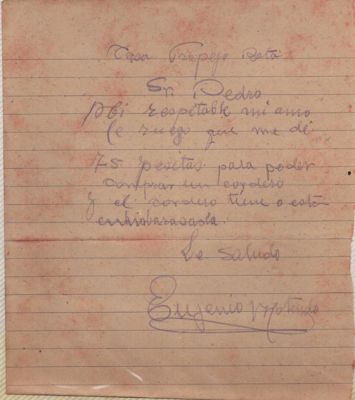 Casa
Sr Pedro
Mi respetable mi amo
le ruego que me dé
75 pesetas para poder
comprar un cordero
y el cordero tiene o está
Le Saluda
Eugenio